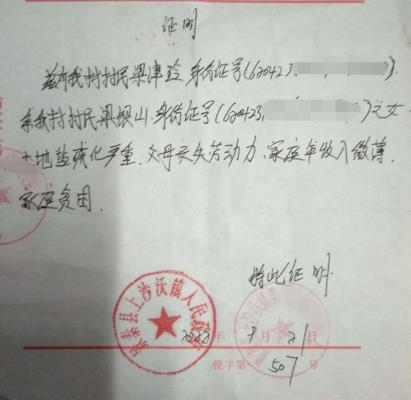 证明
兹有我村村民梁津玲 身份证号(620423
系我村村民梁银山 身份证号(620423,)之女
土地盐碱化严重,父母丧失劳动力,家庭年收入微薄,
家庭贫困.
特此证明.
景泰县上沙沃镇人民政府
年 月 21日
便字第 507 号